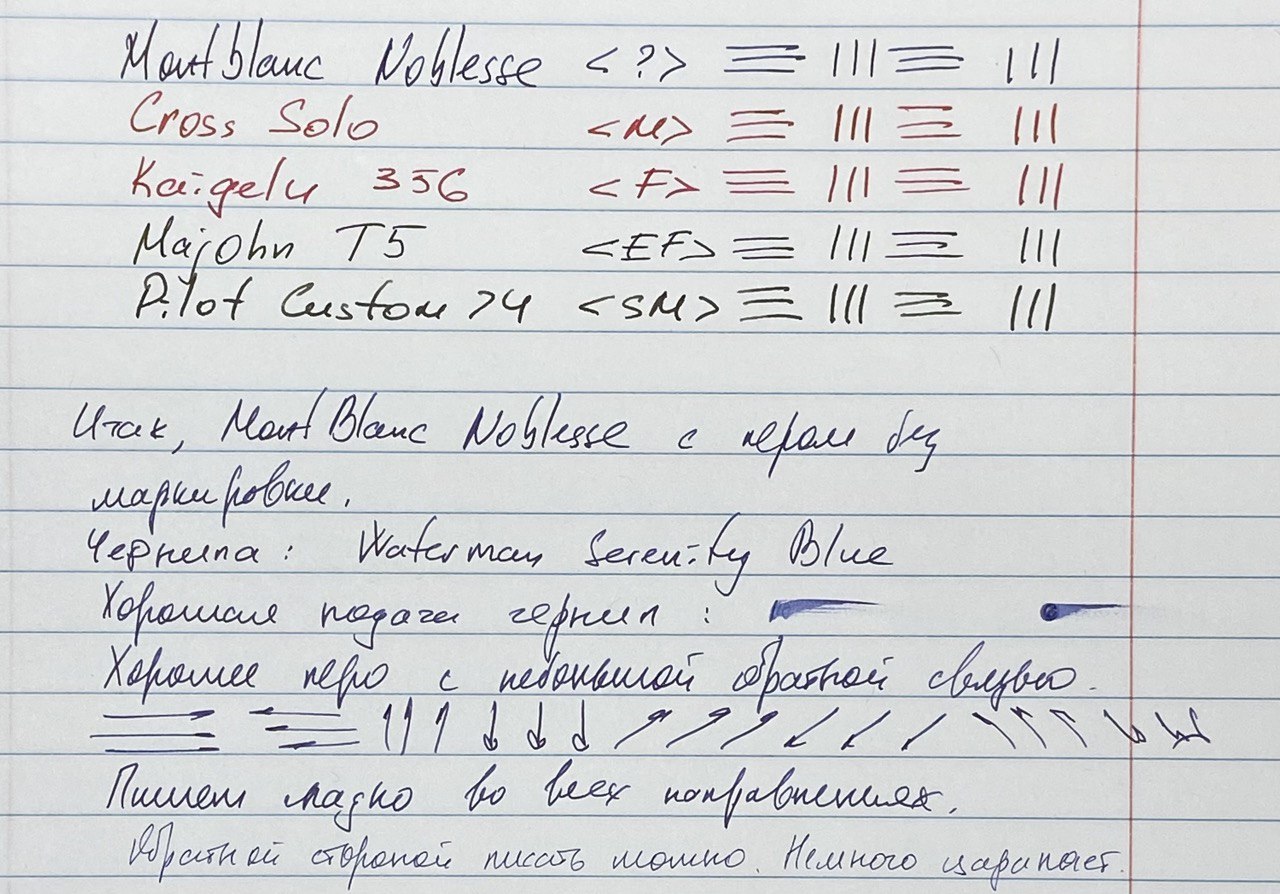 Montblanc Noblesse <?>
Cross Solo <M>
Kaigelu 356 <F>
Majohn T5 <EF>
Pilot Custom 74 <SM>
Итак, MontBlanc Noblesse с пером без
маркировки.
Чернила: Waterman Serenity Blue
Хорошая подача чернил:
Хорошее перо с небольшой обратной связью.
Пишет гладко во всех направлениях.
Обратной стороной писать можно. Немного царапает.